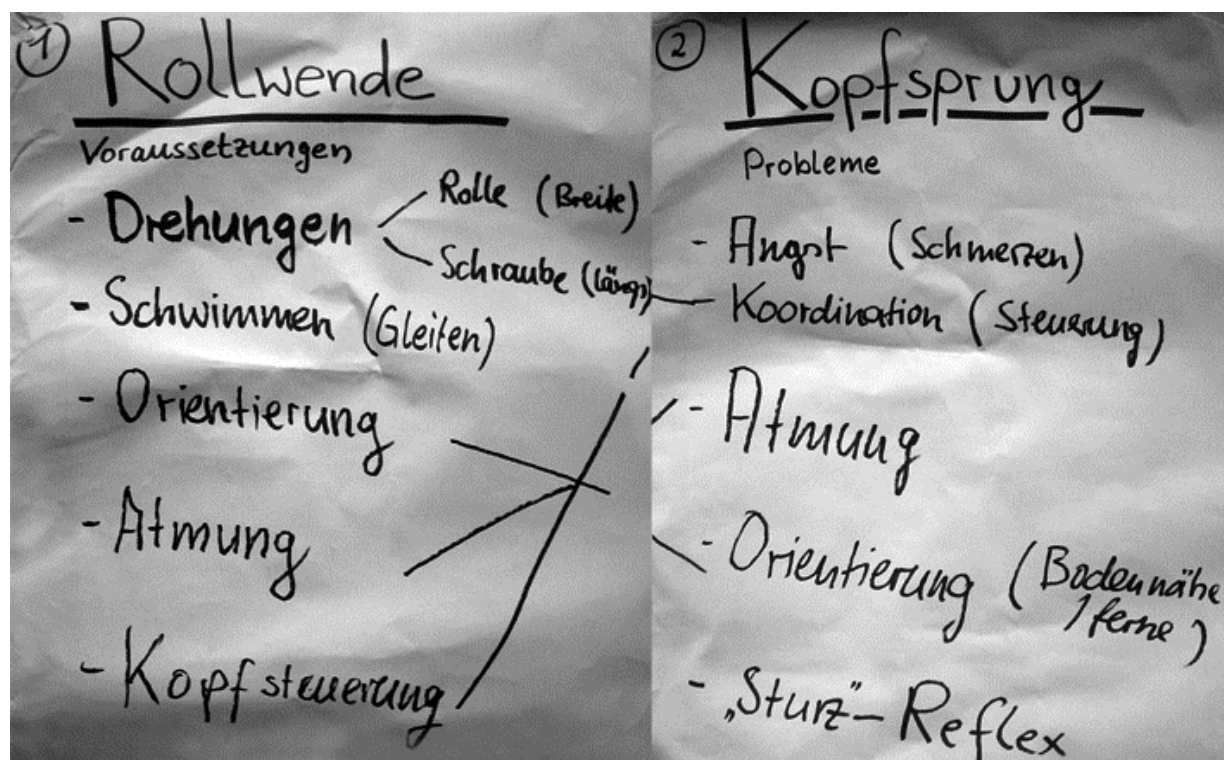 1 Rollwende
Voraussetzungen
- Drehungen
Rolle (Breite)
Schraube (längs)
- Schwimmen (Gleiten)
- Orientierung
- Atmung
- Kopfsteuerung
2 Kopfsprung
Probleme
- Angst (Schmerzen)
- Koordination (Steuerung)
- Atmung
- Orientierung (Bodennähe
/ferne)
- „Sturz"-Reflex